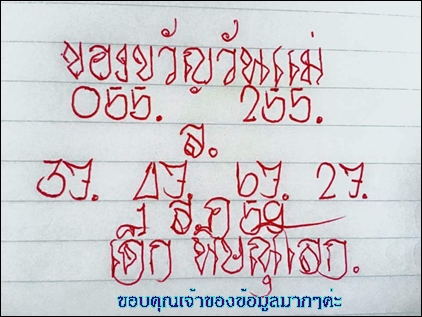 ของขวัญวันแม่
055. 255.
ส.
37. 47. 67. 27.
1 ส.ค 59
พิษณุโลก.
ขอบคุณเจ้าของข้อมูลมากๆค่ะ